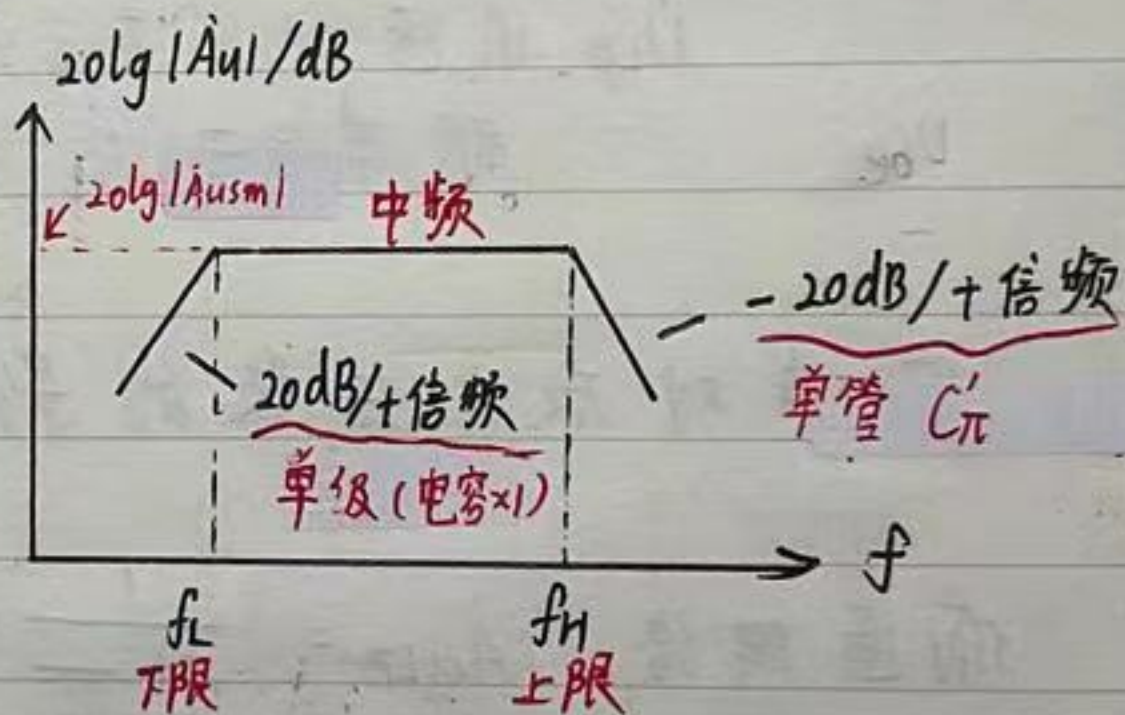 20lg|Ȧu|/dB
20lg|Ȧusm|
中频
-20dB/十倍频
单管 C'π
20dB/十倍频
单级(电容×1)
f
fL
fH
下限
上限